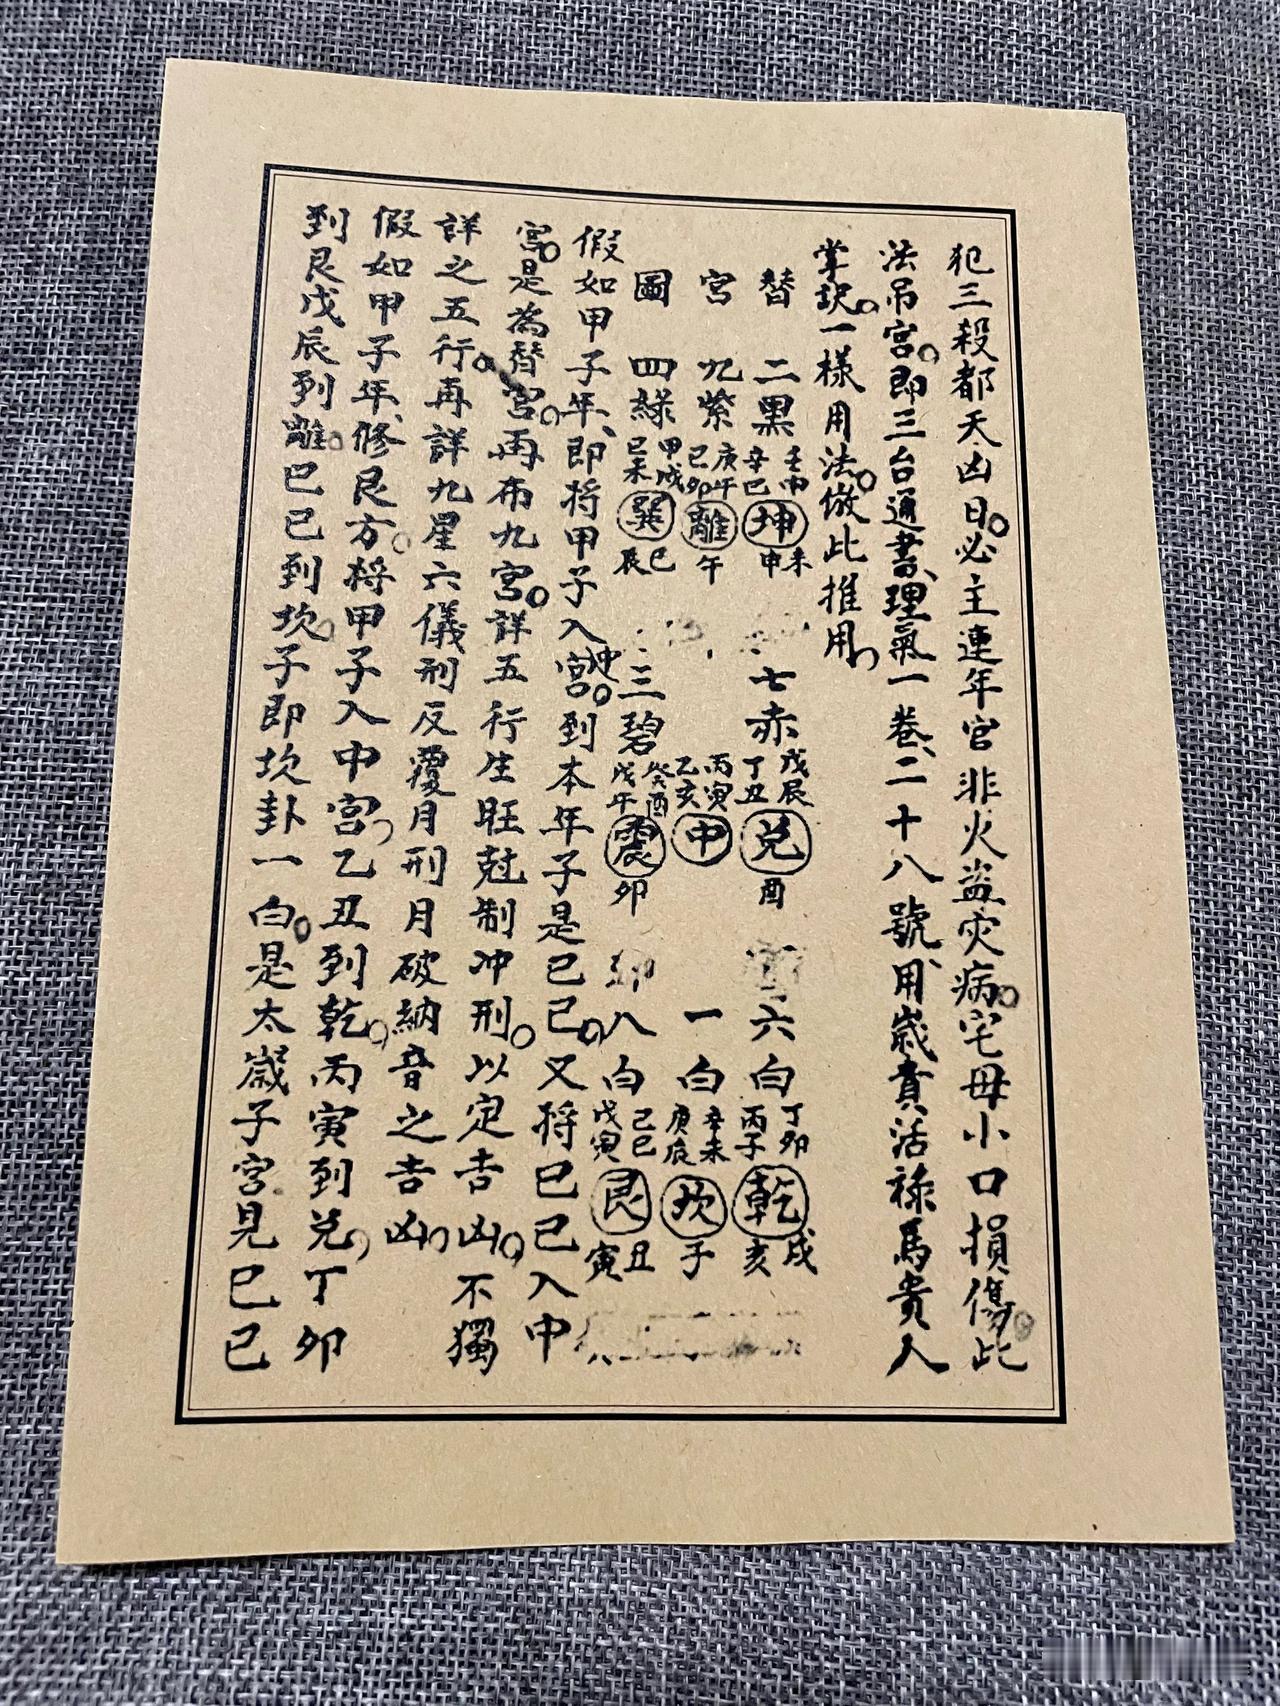 犯三殺都天凶日。必主連年官非火盜災病。宅母小口損傷。此
法吊宮。即三台通書、理氣一巻、二十八號、用歲貴活祿馬貴人
掌訣。一樣用法。倣此推用、
替 二黑 壬申 辛巳 坤 未 申 七赤 戊辰 丁丑 兑 酉 六白 丁卯 丙子 乾 戌 亥
宮 九紫 庚午 己卯 離 午 丙寅 乙亥 中 一白 辛未 庚辰 坎 子
圖 四綠 甲戌 巽 巳 辰 三碧 癸酉 戊午 震 卯 八白 己巳 戊寅 艮 丑 寅
假如甲子年、即将甲子入中宮。到本年子是己巳。又将巳己入中
宮。是為替宮。再布九宮。詳五行生旺尅制冲刑。以定吉凶。不獨
詳之五行。再詳九星六儀刑反覆月刑月破納音之吉凶、
假如甲子年、修艮方。将甲子入中宮、乙丑到乾。丙寅到兑、丁卯
到艮戊辰到離。巳己到坎。子即坎卦一白。是太歲子宮見巳己